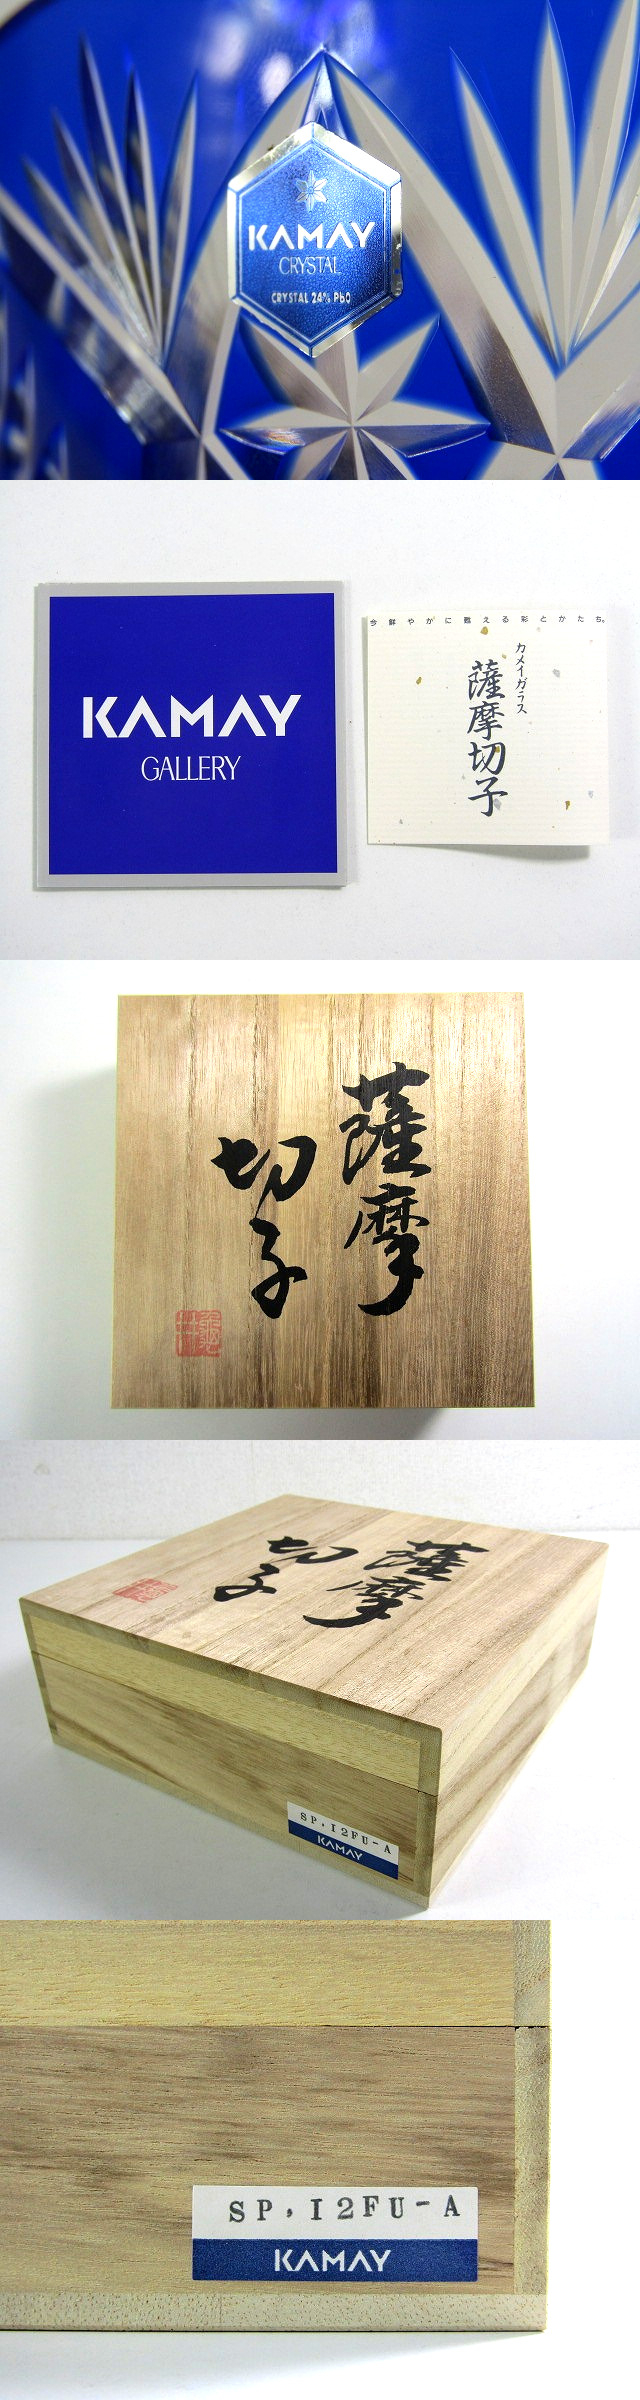 KAMAY
CRYSTAL
CRYSTAL 24% PbO
KAMAY
GALLERY
今鮮やかに甦える彩とかたち。
カメイガラス
薩摩切子
薩摩
切子
薩摩
切子
SP.I2FU-A
KAMAY
SP.I2FU-A
KAMAY